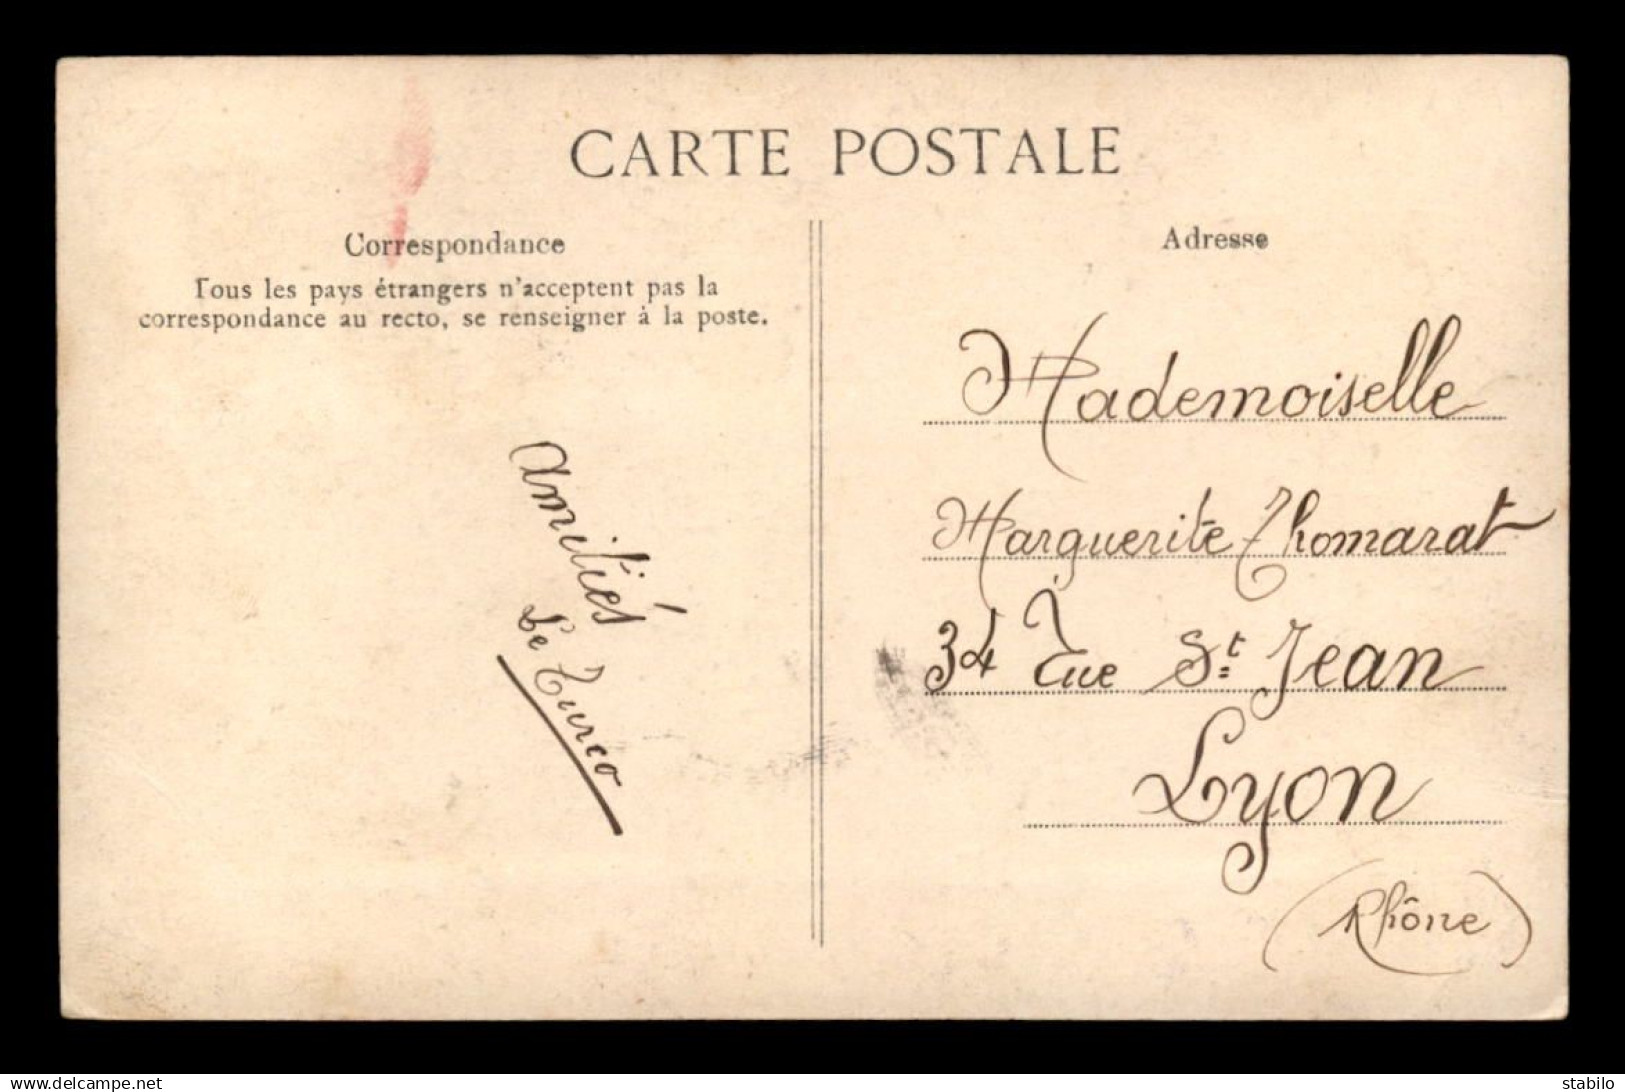 CARTE POSTALE
Correspondance
Tous les pays étrangers n'acceptent pas la
correspondance au recto, se renseigner à la poste.
Amitiés
Le Turco
Adresse
Mademoiselle
Marguerite Thomarat
34 Rue St Jean
Lyon
(Rhône)
stabilo